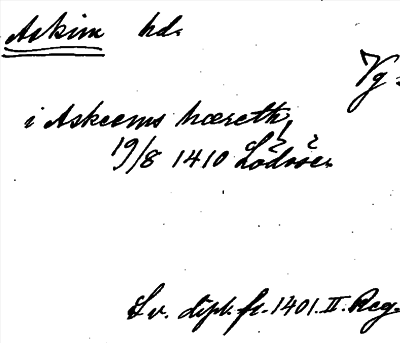 Askim hd.
Vg.
i Askeems hæreth!
19/8 1410 Lödose.
Sv. dipl. fr. 1401. II. Reg.